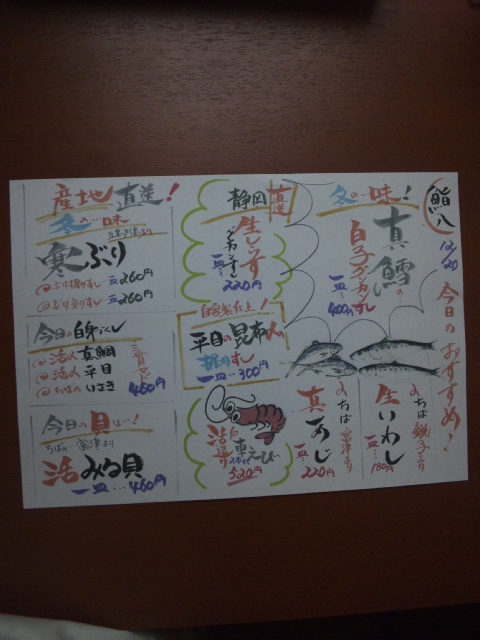 鮨八
12/20
今日のおすすめ!
冬の…味!
真鱈の…
白子グンカン
一皿…400円
静岡直送
生しらす
一皿…
220円
産地直送!
冬の…味
寒ぶり
ぶり握りすし…一皿260円
ぶり炙りすし…一皿260円
自家製仕上!
平目の昆布〆
握りすし
一皿…300円
今日の白身づくし
活〆真鯛
活〆平目
ちばのいさき
三貫
460円
今日の貝は…!
ちばの…富津より
活みる貝
一皿…460円
活〆
車えび
520円
ちば富津より
真あじ
一皿…
220円
ちば銚子より
生いわし
一皿…
180円